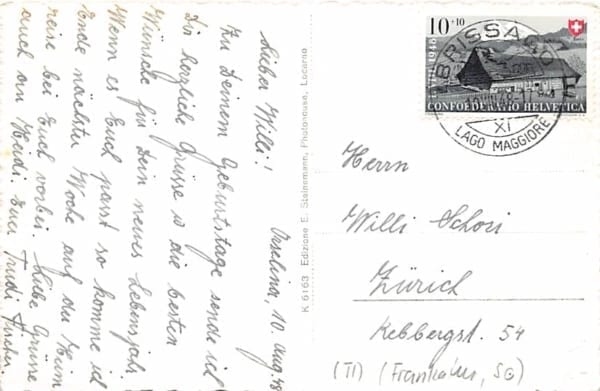 Orselina, 10. Aug. 48
Lieber Willi!
Zu Deinem Geburtstage sende ich
Dir herzliche Grüsse u die besten
Wünsche für Dein neues Lebensjahr.
Wenn es Euch passt so komme ich
Ende nächster Woche auf der Heim
reise bei Euch vorbei. Liebe Grüsse
auch an Heidi. Euer Trudi Fischer
K 6163 Edizione E. Steinemann, Photohouse, Locarno
10+10
CONFOEDERATIO HELVETICA
BRISSAGO
XI
LAGO MAGGIORE
Herrn
Willi Schori
Zürich
Rebbergst. 54
(TI) (Frankatur, SG)